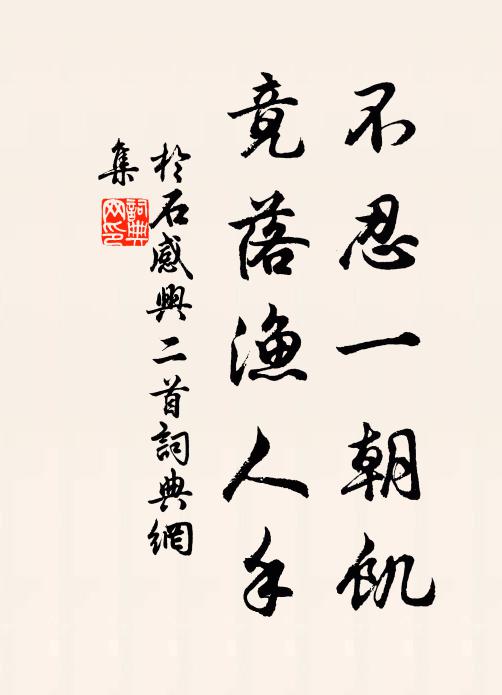 不忍一朝飢
竟落漁人手
於石感興二首詞典網
集
詞典
网印